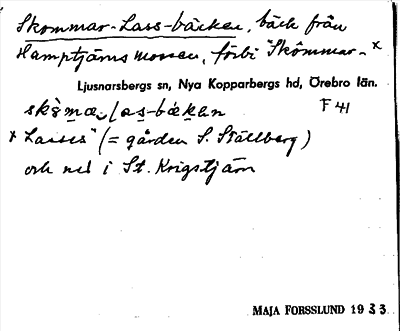 Skommar-Lass-bäcken, bäck från
Hamptjärns mossen, förbi "Skömmar- x
Ljusnarsbergs sn, Nya Kopparbergs hd, Örebro län.
skömæ‿las-bäkən F 41
x Lasses" (= gården S. Ställberg)
och ned i St. Krigstjärn
MAJA FORSSLUND 1933